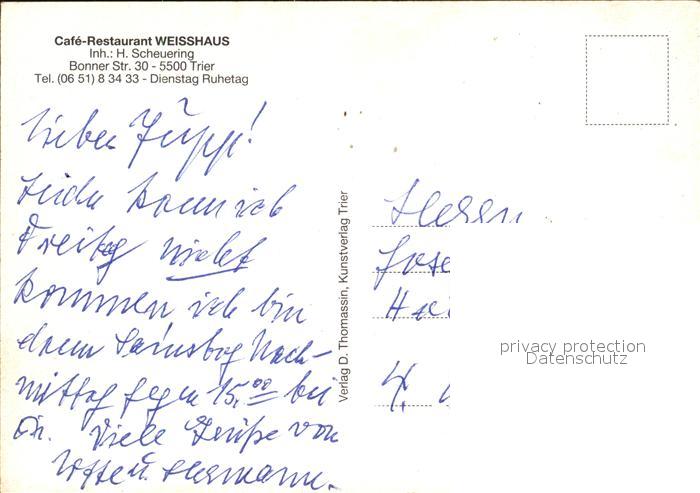 Café-Restaurant WEISSHAUS
Inh.: H. Scheuering
Bonner Str. 30 - 5500 Trier
Tel. (06 51) 8 34 33 - Dienstag Ruhetag
Lieber Jupp!
Leider kann ich
Freitag nicht
kommen ich bin
dann Samstag Nach-
mittag gegen 15,00 bei
Dir. Viele Grüße von
u. Hermann.
Verlag D. Thomassin, Kunstverlag Trier
Herrn
Jose
4.
privacy protection
Datenschutz